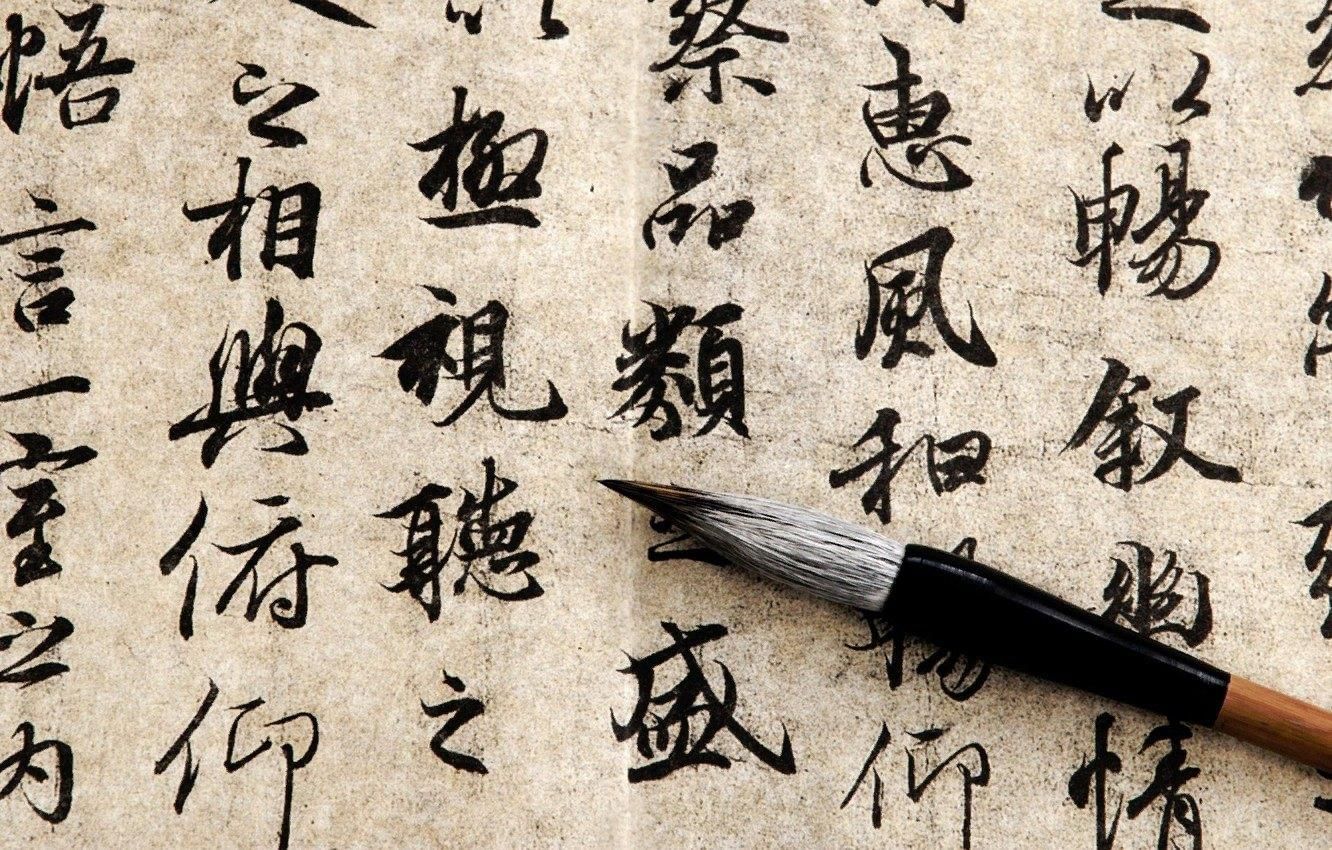 以暢叙幽情
惠風和暢仰
察品類之盛
以極視聽之
之相與俯仰
悟言一室之内